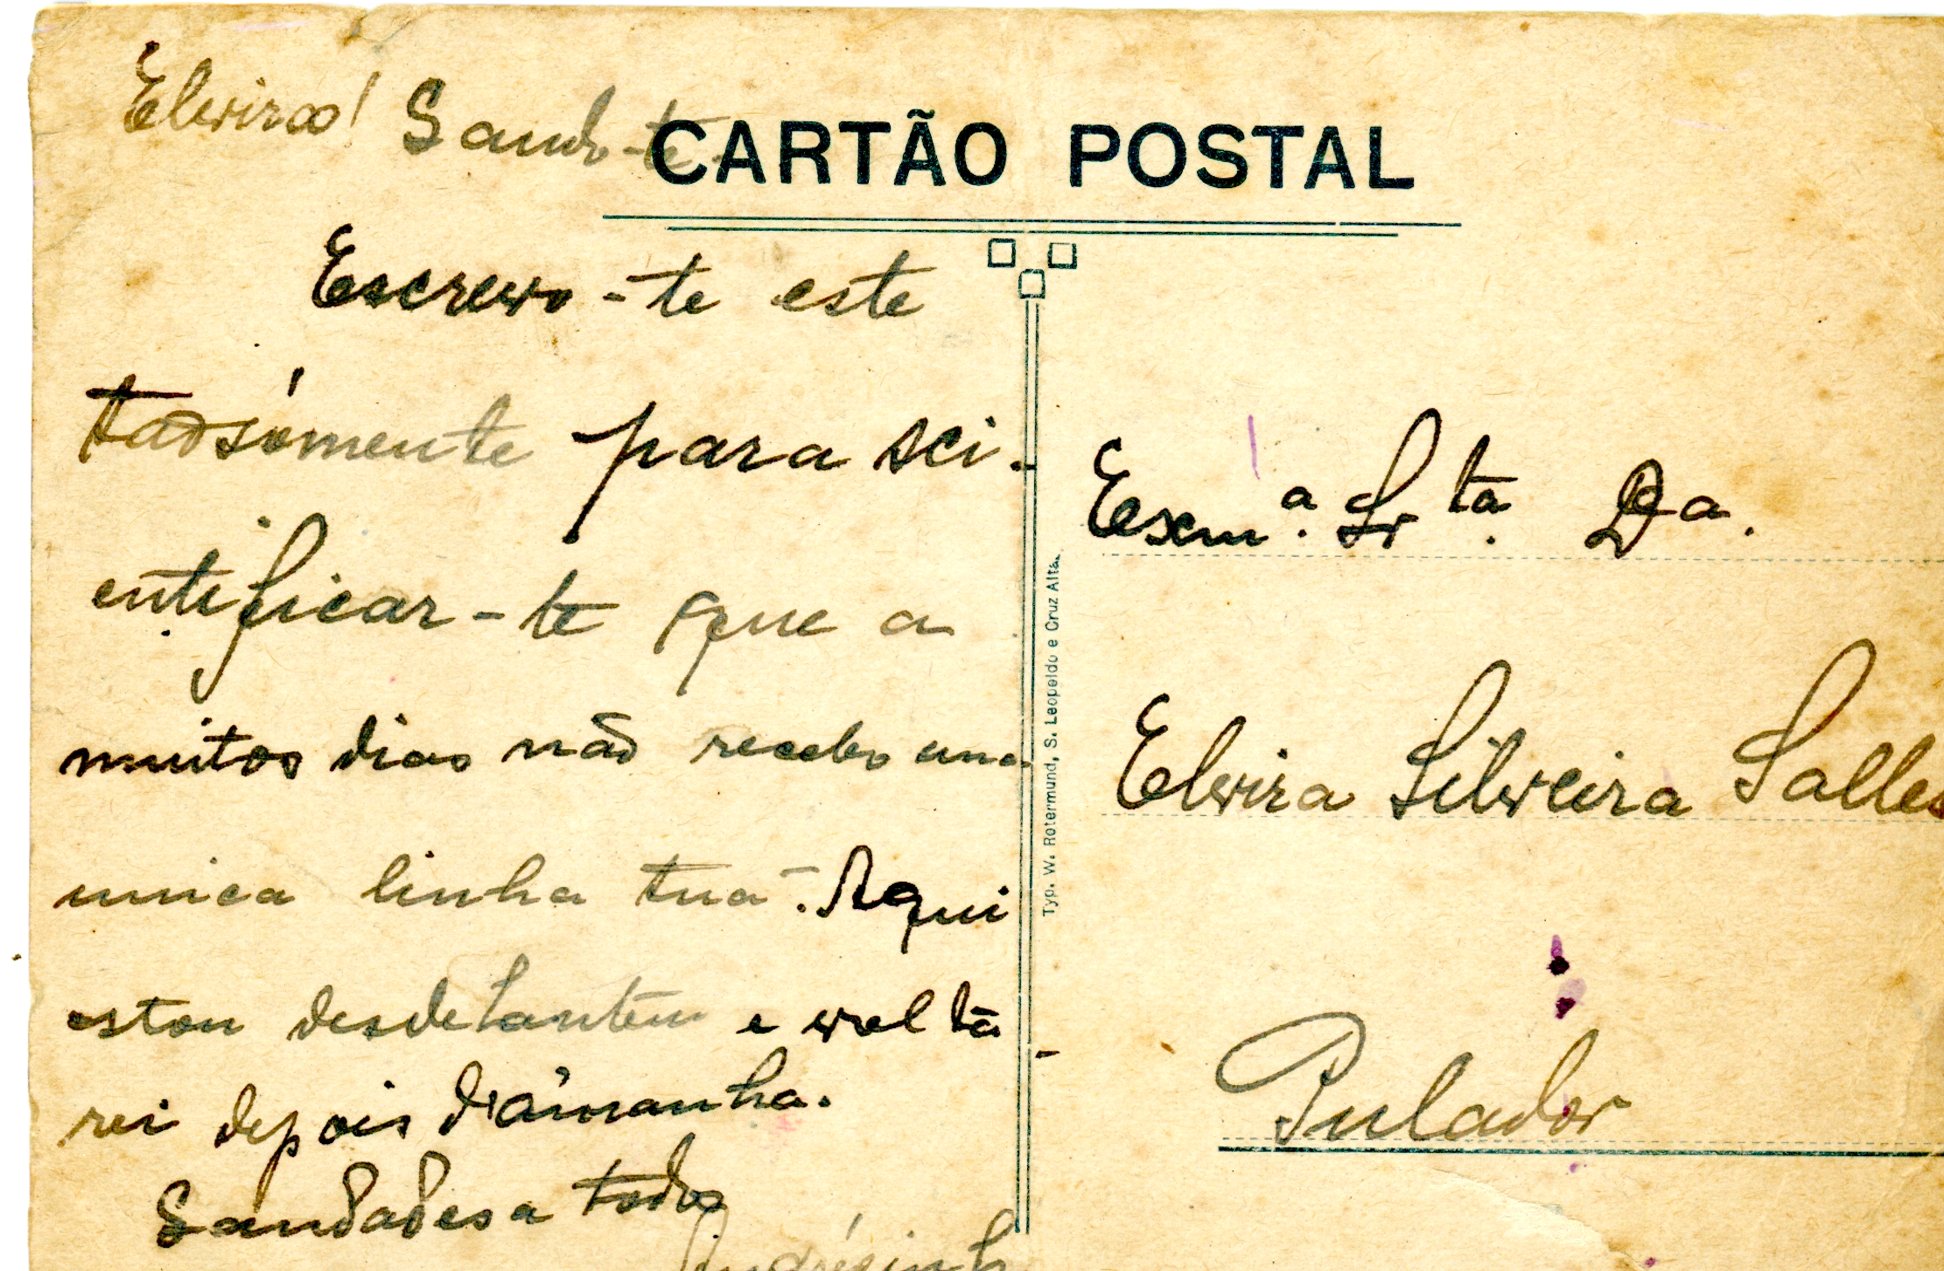 Elvira! Saudo-te.
CARTÃO POSTAL
Escrevo-te este
tãosómente para sci-
entificar-te que a
muitos dias não recebo uma
unica linha tua. Aqui
estou desde hantem e volta-
rei depois d'amanha.
Saudades a todos
Andrésinh
Typ. W. Rotermund, S. Leopoldo e Cruz Alta.
Exmª. Srtª. Da.
Elvira Silveira Salles
Pulador